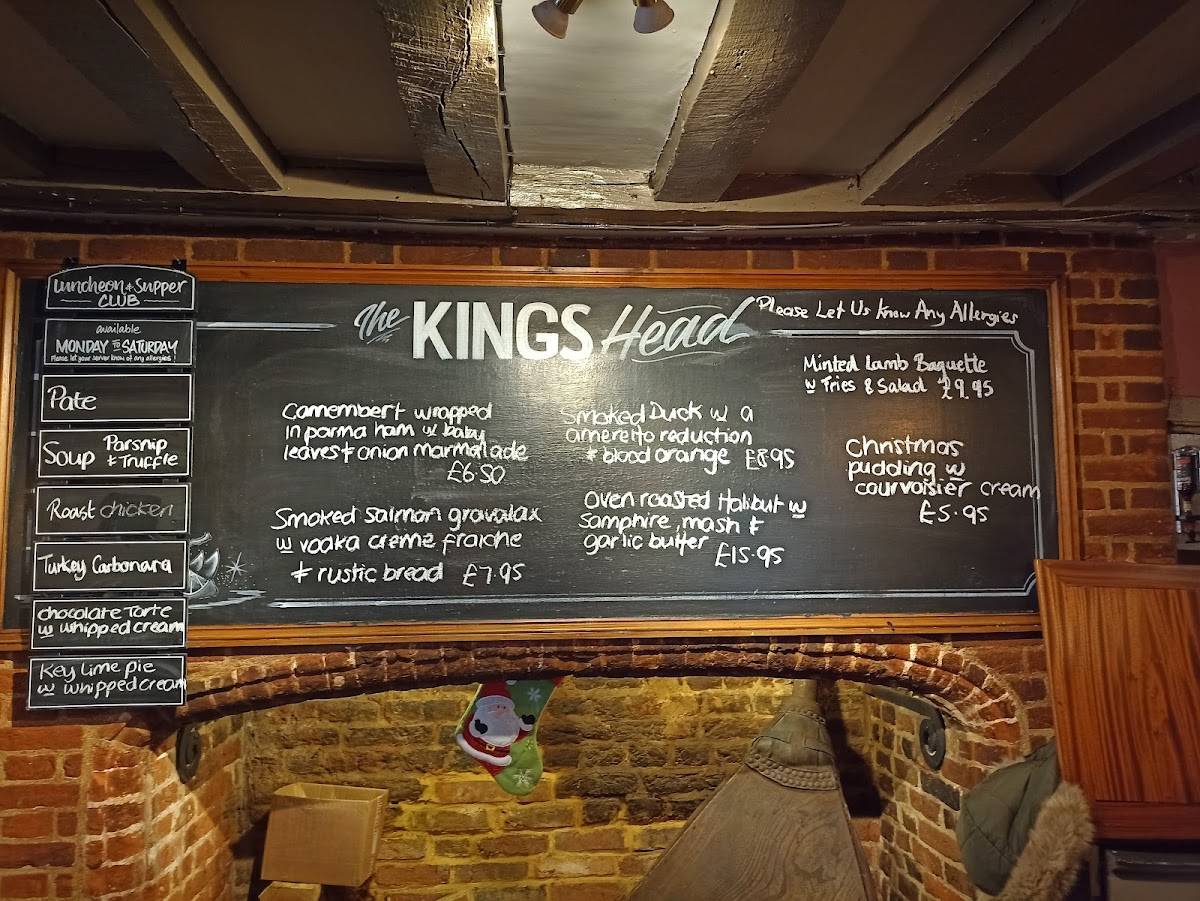 Luncheon & Supper
CLUB
available
MONDAY TO SATURDAY
Please let your server know of any allergies!
Pate
Soup Parsnip
& Truffle
Roast chicken
Turkey Carbonara
chocolate Torte
w whipped cream
Key lime pie
w whipped cream
The KINGS Head
Please Let Us Know Any Allergies
Camembert wrapped
In parma ham w baby
leaves & onion marmalade
£6.50
Smoked Salmon gravalax
w vodka creme fraiche
& rustic bread £7.95
Smoked Duck w a
amereito reduction
& blood orange £8.95
Oven roasted Halibut w
Samphire, mash &
garlic butter £15.95
Minted Lamb Baguette
w Fries & Salad £9.95
Christmas
pudding w
courvoisier cream
£5.95